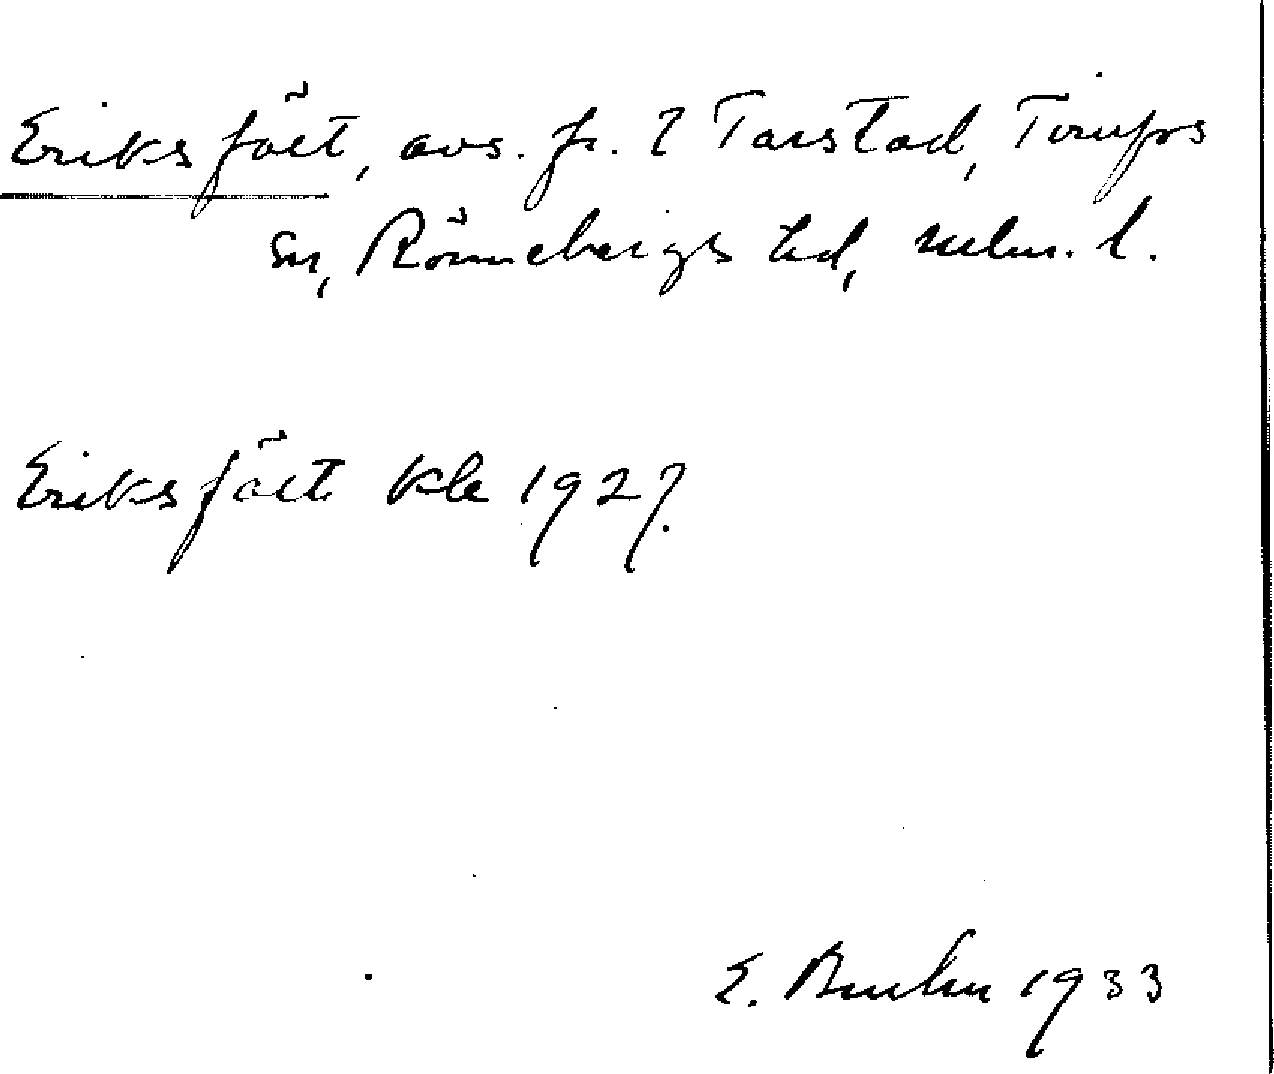 Eriksfält, avs. fr. 2 Tarstad, Tirups
sn, Rönnebergs hd, Mlm. l.
Eriksfält kla 1927.
E. 1933